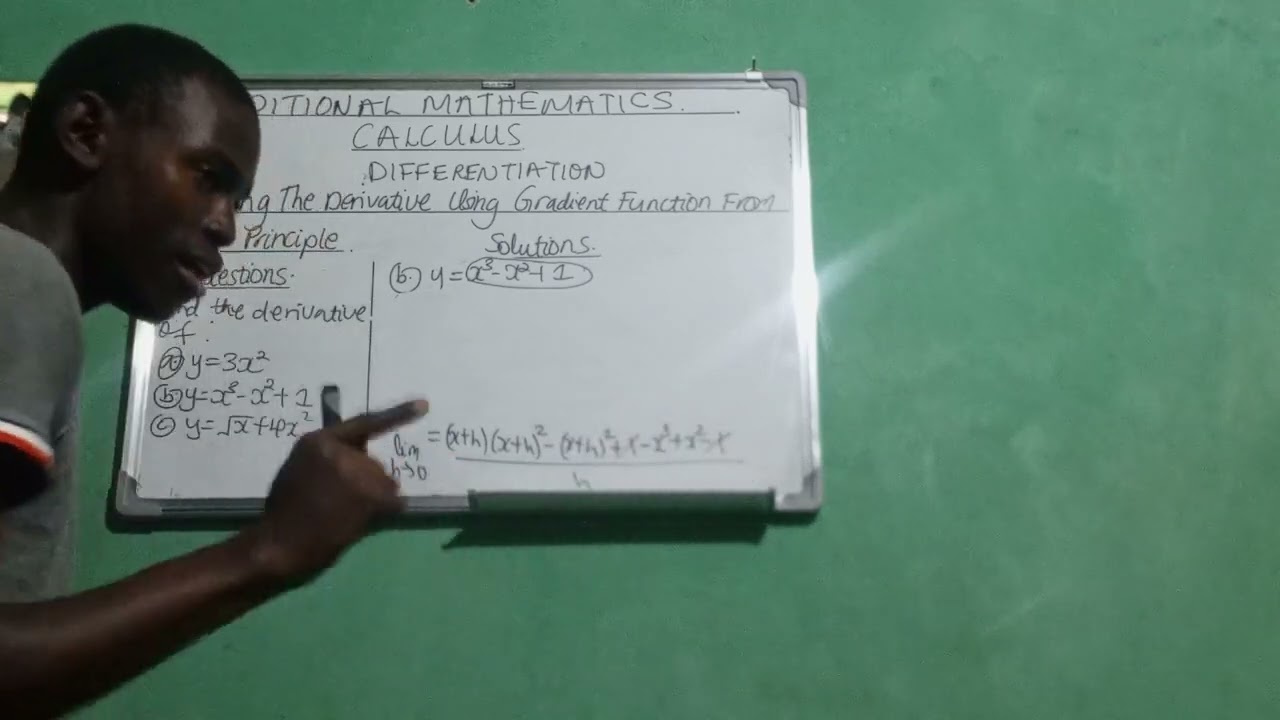 DITIONAL MATHEMATICS.
CALCULUS
DIFFERENTIATION
ng The Derivative Using Gradient Function From
Principle.
estions.
nd the derivative
of:
(a) y=3x²
(b) y=x³-x²+1
(c) y=√x+4x²
Solutions.
(b.) y=x³-x²+1
lim h→0 = (x+h)(x+h)²-(x+h)²+1-x³+x²-1
h